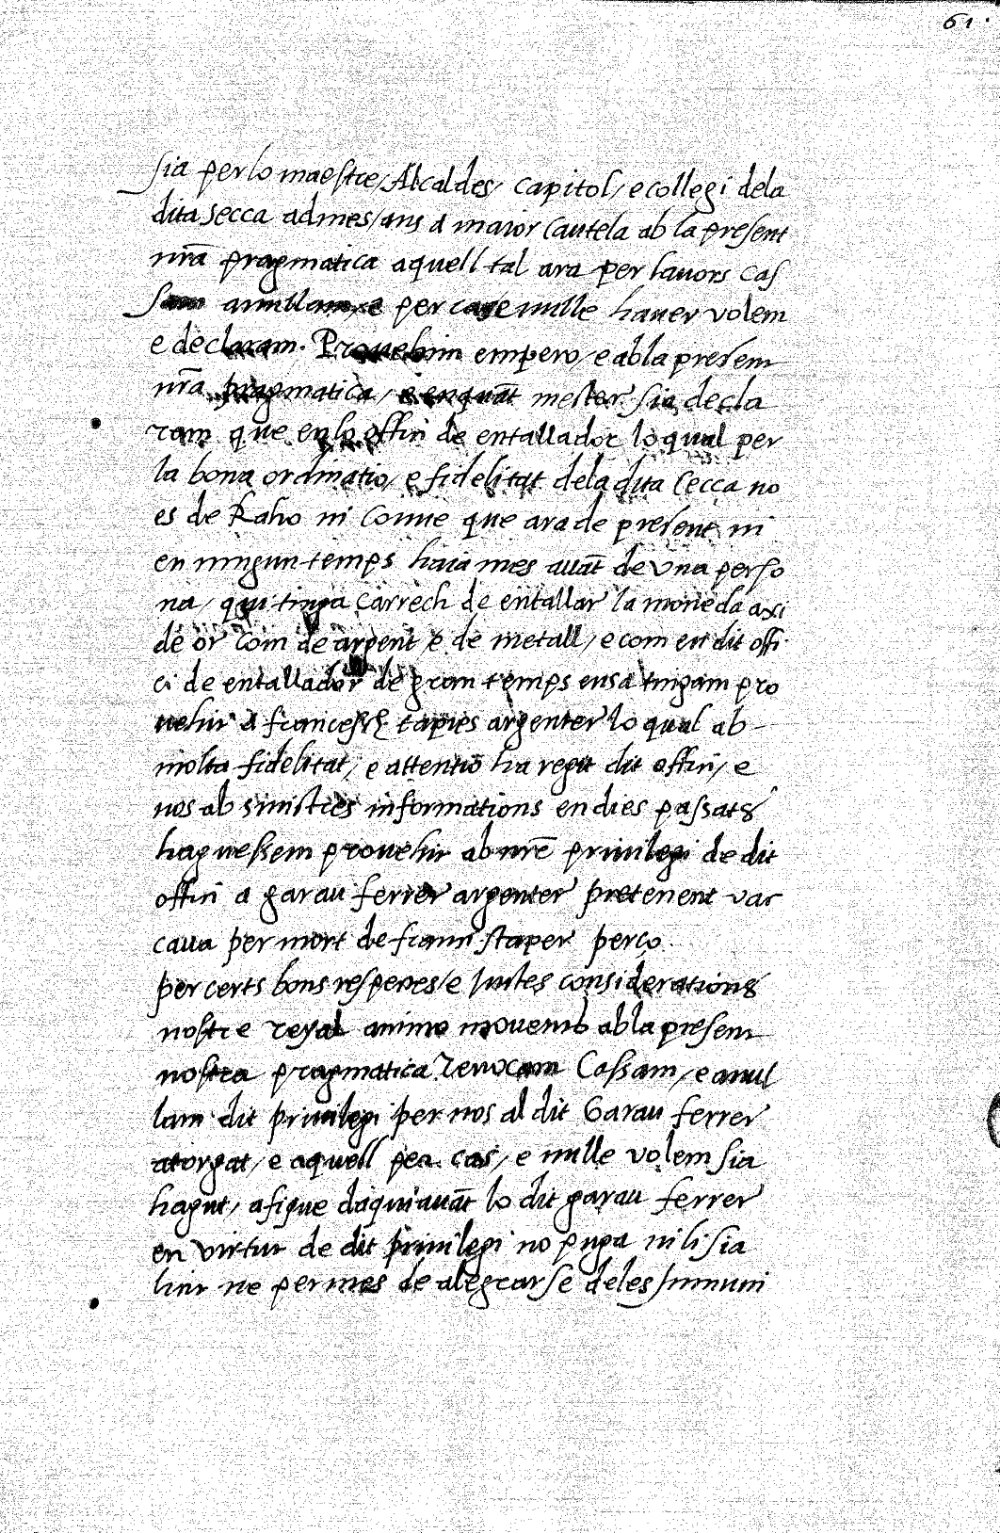 61.
sia per lo maestre / Alcaldes / capitol / e collegi dela
dita secca admes / ans a maior cautela ab la present
nr̄a pragmatica aquell tal ara per lauors cas
sam anullam e per e nulle hauer volem
e declaram. Prouehim empero / e ab la presem
nr̄a pragmatica / e enquāt mester sia decla
ram que en lo offici de entallador lo qual per
la bona ordinatio / e fidelitat dela dita secca no
es de Raho ni conue que ara de present ni
en ningun temps haia mes auāt de vna perso
na / qui tinga carrech de entallar la moneda axi
de or com de argent e de metall / e com en dit offi
ci de entallador de gram temps ensa tingam pro
uehir a francesch tapies argenter lo qual ab
molta fidelitat / e attentio ha regit dit offici / e
nos ab sinistres informations en dies passats
haguessem prouehir ab nrē priuilegi de dit
offici a garau ferrer argenter pretenent vac
caua per mort de staper perço
per certs bons respectes / e justes considerations
nostre reyal animo mouents ab la presem
nostra pragmatica reuocam Cassam / e anul
lam dit priuilegi per nos al dit Garau ferrer
atorgat / e aquell per cas / e nulle volem sia
hagut / afique daqui auāt lo dit garau ferrer
en virtut de dit priuilegi no puga ni li sia
licit ne permes de alegrarse deles Immuni